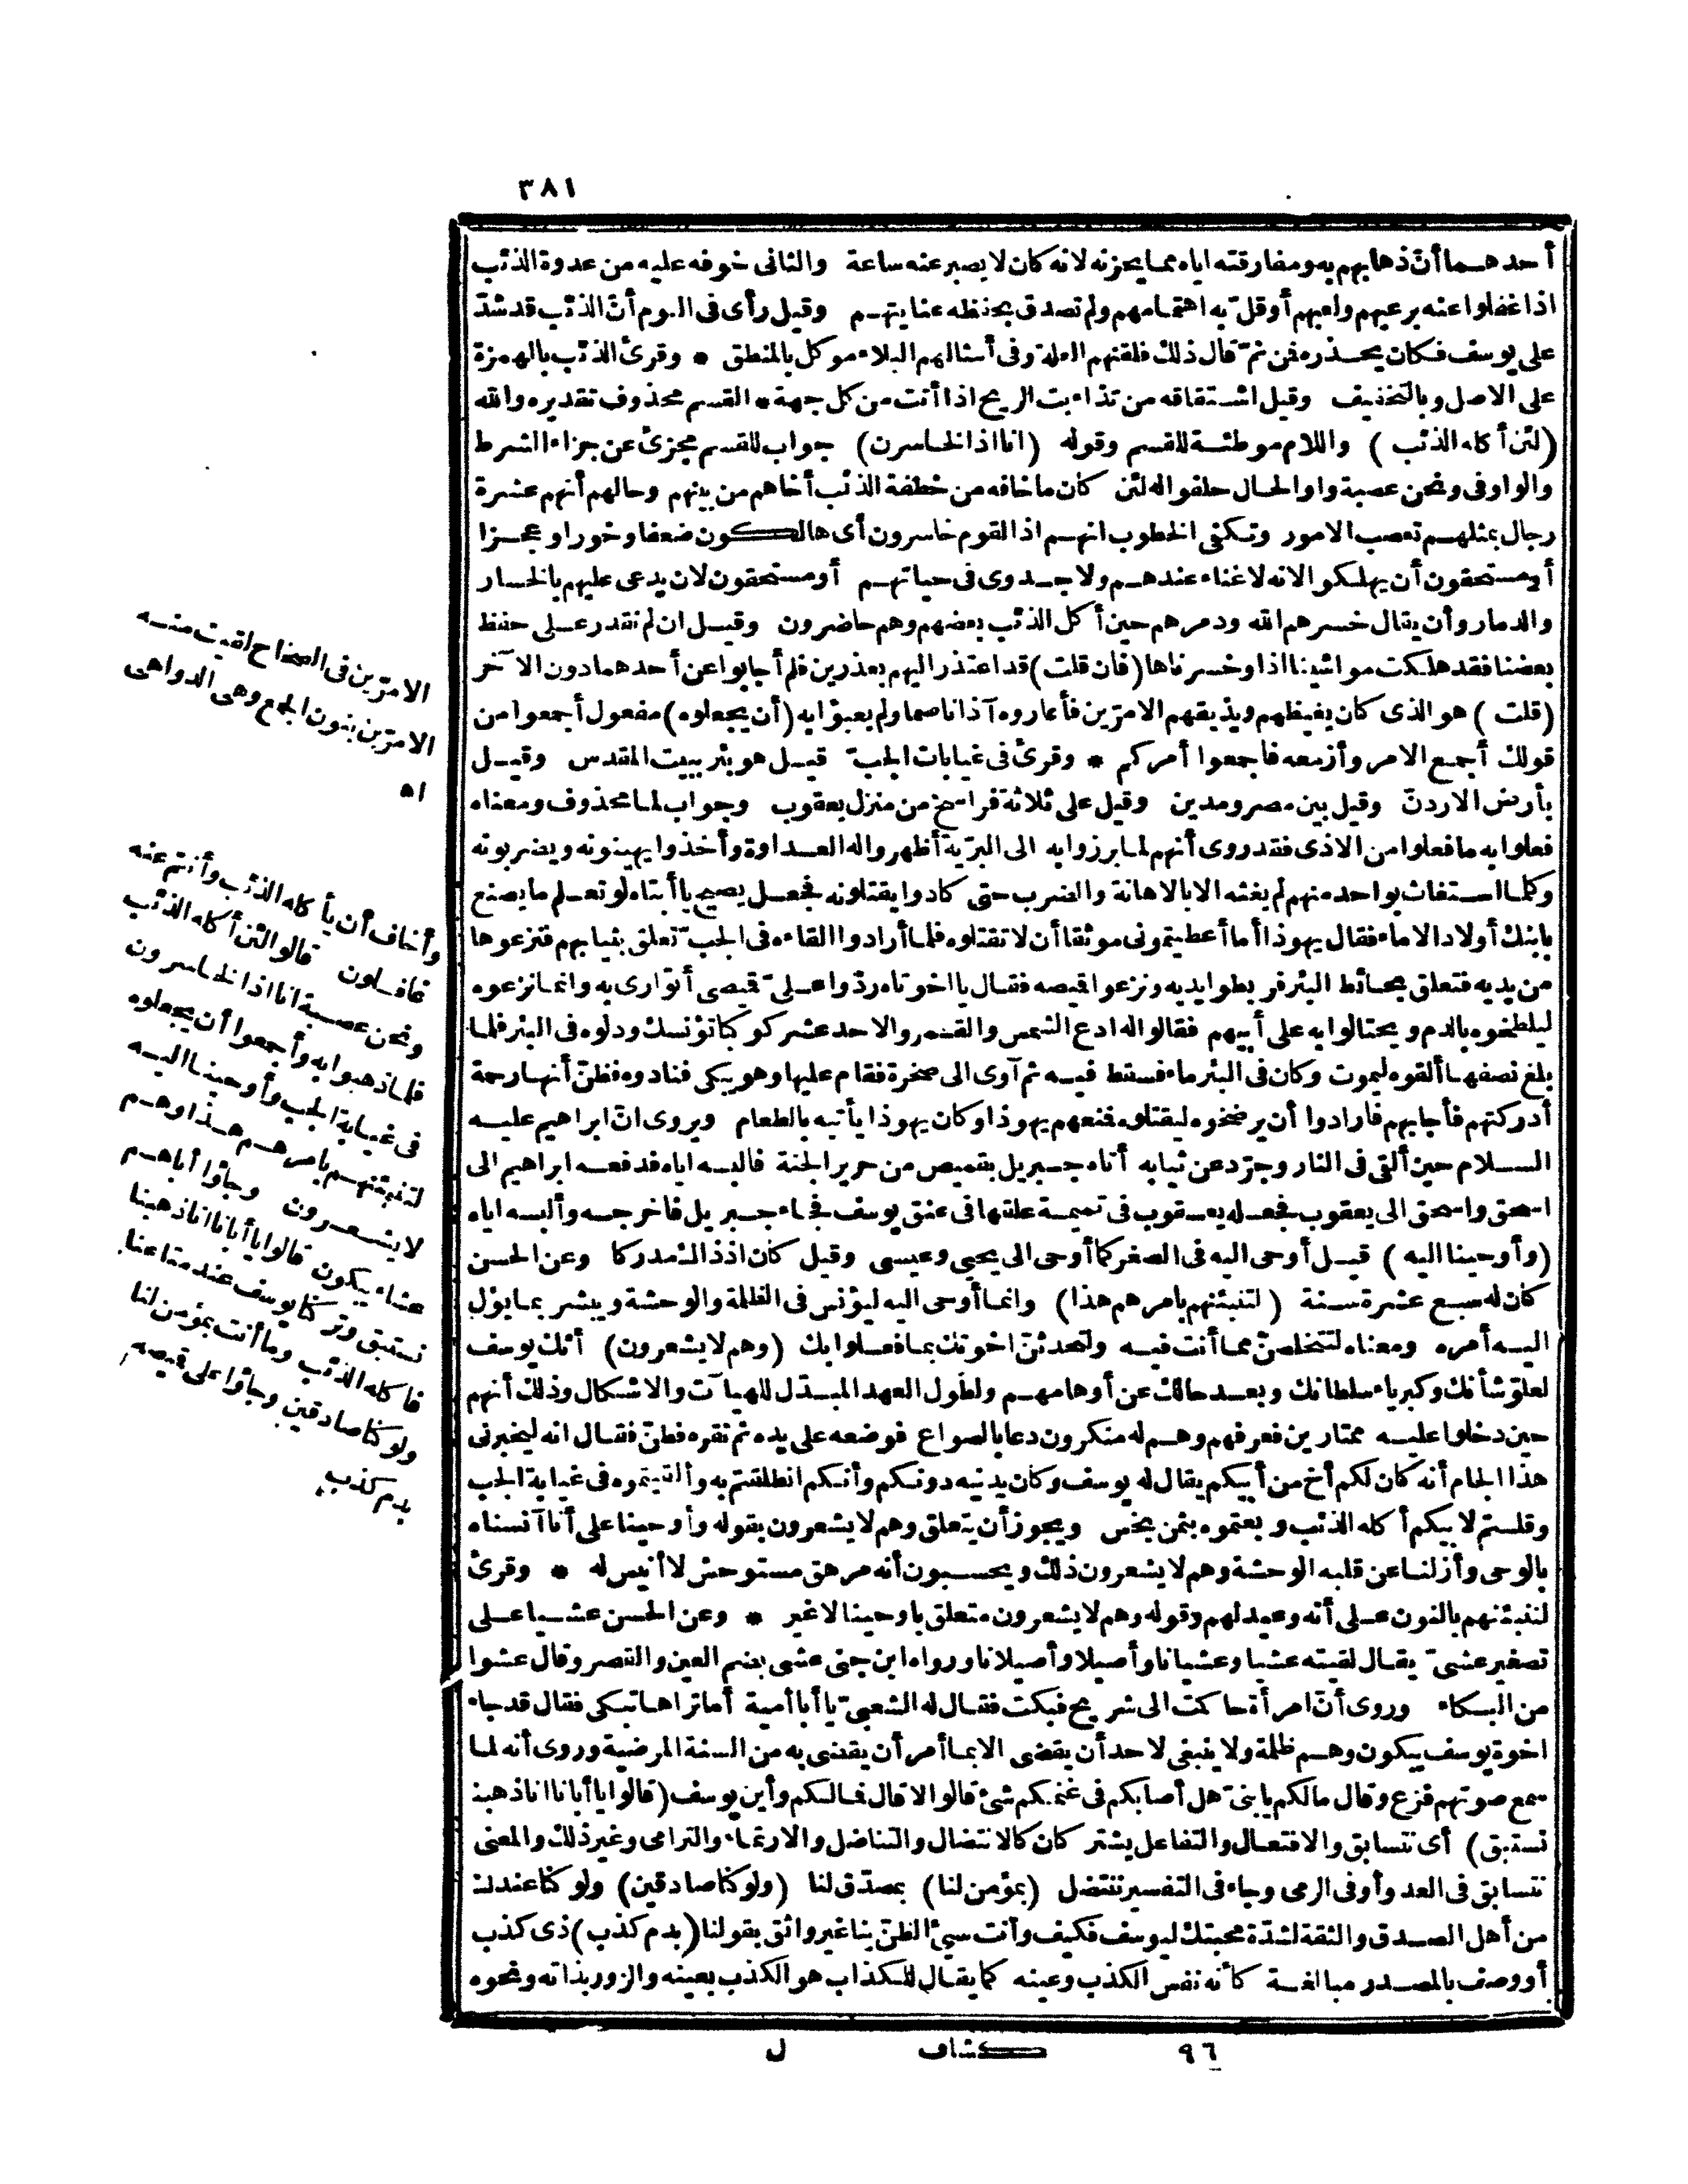 ٣٨١
أحدهما أنّ ذهابهم به ومفارقته اياه مما يحزنه لانه كان لا يصبر عنه ساعة والثانى خوفه عليه من عدوة الذئب
اذا غفلوا عنه برعيهم ولعبهم أو قلّ به اهتمامهم ولم تصدق بحفظه عنايتهم وقيل رأى فى النوم أنّ الذئب قد شدّ
على يوسف فكان يحذره فمن ثمّ قال ذلك فلقنهم العلة وفى أمثالهم البلاء موكل بالمنطق * وقرئ الذئب بالهمزة
على الاصل وبالتخفيف وقيل اشتقاقه من تذاءبت الريح اذا أتت من كل جهة * القسم محذوف تقديره والله
(لئن أكله الذئب) واللام موطئة للقسم وقوله (انا اذا لخاسرون) جواب للقسم مجزئ عن جزاء الشرط
والواو فى ونحن عصبة واو الحال حلفوا له لئن كان ما خافه من خطفة الذئب أخاهم من بينهم وحالهم أنهم عشرة
رجال بمثلهم تعصب الامور وتكفى الخطوب انهم اذا لقوم خاسرون أى هالكون ضعفا وخورا وعجزا
أو مستحقون أن يهلكوا لانه لا غناء عندهم ولا جدوى فى حياتهم أو مستحقون لان يدعى عليهم بالخسار
والدمار وأن يقال خسرهم الله ودمرهم حين أكل الذئب بعضهم وهم حاضرون وقيل ان لم نقدر على حفظ
بعضنا فقد هلكت مواشينا اذا وخسرناها (فان قلت) قد اعتذر اليهم بعذرين فلم أجابوا عن أحدهما دون الآخر
(قلت) هو الذى كان يغيظهم ويذيقهم الامرّين فأعاروه آذانا صما ولم يعبؤا به (أن يجعلوه) مفعول أجمعوا من
قولك أجمع الامر وأزمعه فاجمعوا أمركم * وقرئ فى غيابات الجبّ قيل هو بئر ببيت المقدس وقيل
بأرض الاردنّ وقيل بين مصر ومدين وقيل على ثلاثة فراسخ من منزل يعقوب وجواب لما محذوف ومعناه
فعلوا به ما فعلوا من الاذى فقد روى أنهم لما برزوا به الى البرّية أظهروا له العداوة وأخذوا يهينونه ويضربونه
وكلما استغاث بواحد منهم لم يغثه الا بالاهانة والضرب حتى كادوا يقتلونه فجعل يصيح يا أبتاه لو تعلم ما يصنع
بابنك أولاد الاماء فقال يهوذا أما أعطيتمونى موثقا أن لا تقتلوه فلما أرادوا القاءه فى الجبّ تعلق بثيابهم فنزعوها
من يديه فتعلق بحائط البئر فربطوا يديه ونزعوا قميصه فقال يا اخوتاه ردّوا علىّ قميصى أتوارى به وانما نزعوه
ليلطخوه بالدم ويحتالوا به على أبيهم فقالوا له ادع الشمس والقمر والاحد عشر كوكبا تؤنسك ودلوه فى البئر فلما
بلغ نصفها ألقوه ليموت وكان فى البئر ماء فسقط فيه ثم آوى الى صخرة فقام عليها وهو يبكى فنادوه فظنّ أنها رحمة
أدركتهم فأجابهم فارادوا أن يرضخوه ليقتلوه فمنعهم يهوذا وكان يهوذا يأتيه بالطعام ويروى انّ ابراهيم عليه
السلام حين ألقى فى النار وجرّد عن ثيابه أتاه جبريل بقميص من حرير الجنة فالبسه اياه فدفعه ابراهيم الى
اسحق واسحق الى يعقوب فجعله يعقوب فى تميمة علقها فى عنق يوسف فجاء جبريل فاخرجه وألبسه اياه
(وأوحينا اليه) قيل أوحى اليه فى الصغر كما أوحى الى يحيى وعيسى وقيل كان اذ ذاك مدركا وعن الحسن
كان له سبع عشرة سنة (لتنبئنهم بامرهم هذا) وانما أوحى اليه ليؤنس فى الظلمة والوحشة ويبشر بما يؤل
اليه أمره ومعناه لتتخلصنّ مما أنت فيه ولتحدثنّ اخوتك بما فعلوا بك (وهم لا يشعرون) أنك يوسف
لعلوّ شأنك وكبرياء سلطانك وبعد حالك عن أوهامهم ولطول العهد المبدّل للهيات والاشكال وذلك أنهم
حين دخلوا عليه ممتارين فعرفهم وهم له منكرون دعا بالصواع فوضعه على يده ثم نقره فطنّ فقال انه ليخبرنى
هذا الجام أنه كان لكم أخ من أبيكم يقال له يوسف وكان يدنيه دونكم وأنكم انطلقتم به وألقيتموه فى غيابة الجب
وقلتم لابيكم أكله الذئب وبعتموه بثمن بخس ويجوز أن يتعلق وهم لا يشعرون بقوله وأوحينا على أنا آنسناه
بالوحى وأزلنا عن قلبه الوحشة وهم لا يشعرون ذلك ويحسبون أنه مرهق مستوحش لا أنيس له * وقرئ
لننبئنهم بالنون على أنه وعيد لهم وقوله وهم لا يشعرون متعلق باوحينا لا غير * وعن الحسن عشيا على
تصغير عشىّ يقال لقيته عشيا وعشيانا وأصيلا وأصيلانا ورواه ابن جنى عشى بضم العين والقصر وقال عشوا
من البكاء وروى أنّ امرأة حاكمت الى شريح فبكت فقال له الشعبىّ يا أبا أمية أما تراها تبكى فقال قد جاء
اخوة يوسف يبكون وهم ظلمة ولا ينبغى لاحد أن يقضى الا بما أمر أن يقضى به من السنة المرضية وروى أنه لما
سمع صوتهم فزع وقال مالكم يا بنىّ هل أصابكم فى غنمكم شئ قالوا لا قال فمالكم وأين يوسف (قالوا يا أبانا انا ذهبنا
نستبق) أى نتسابق والافتعال والتفاعل يشتركان كالانتضال والتناضل والارتماء والترامى وغير ذلك والمعنى
نتسابق فى العدو أو فى الرمى وجاء فى التفسير ننتضل (بمؤمن لنا) بمصدّق لنا (ولو كنا صادقين) ولو كنا عندك
من أهل الصدق والثقة لشدّة محبتك ليوسف فكيف وأنت سيئ الظنّ بنا غير واثق بقولنا (بدم كذب) ذى كذب
أو وصف بالمصدر مبالغة كأنه نفس الكذب وعينه كما يقال للكذاب هو الكذب بعينه والزور بذاته ونحوه
الامرّين فى الصحاح لقيت منه
الامرّين بنون الجمع وهى الدواهى
اه
وأخاف أن يأكله الذئب وأنتم عنه
غافلون قالوا لئن أكله الذئب
ونحن عصبة انا اذا لخاسرون
فلما ذهبوا به وأجمعوا أن يجعلوه
فى غيابة الجب وأوحينا اليه
لتنبئنهم بامرهم هذا وهم
لا يشعرون وجاؤا أباهم
عشاء يبكون قالوا يا أبانا انا ذهبنا
نستبق وتركنا يوسف عند متاعنا
فاكله الذئب وما أنت بمؤمن لنا
ولو كنا صادقين وجاؤا على قميصه
بدم كذب
٩٦ كشاف ل